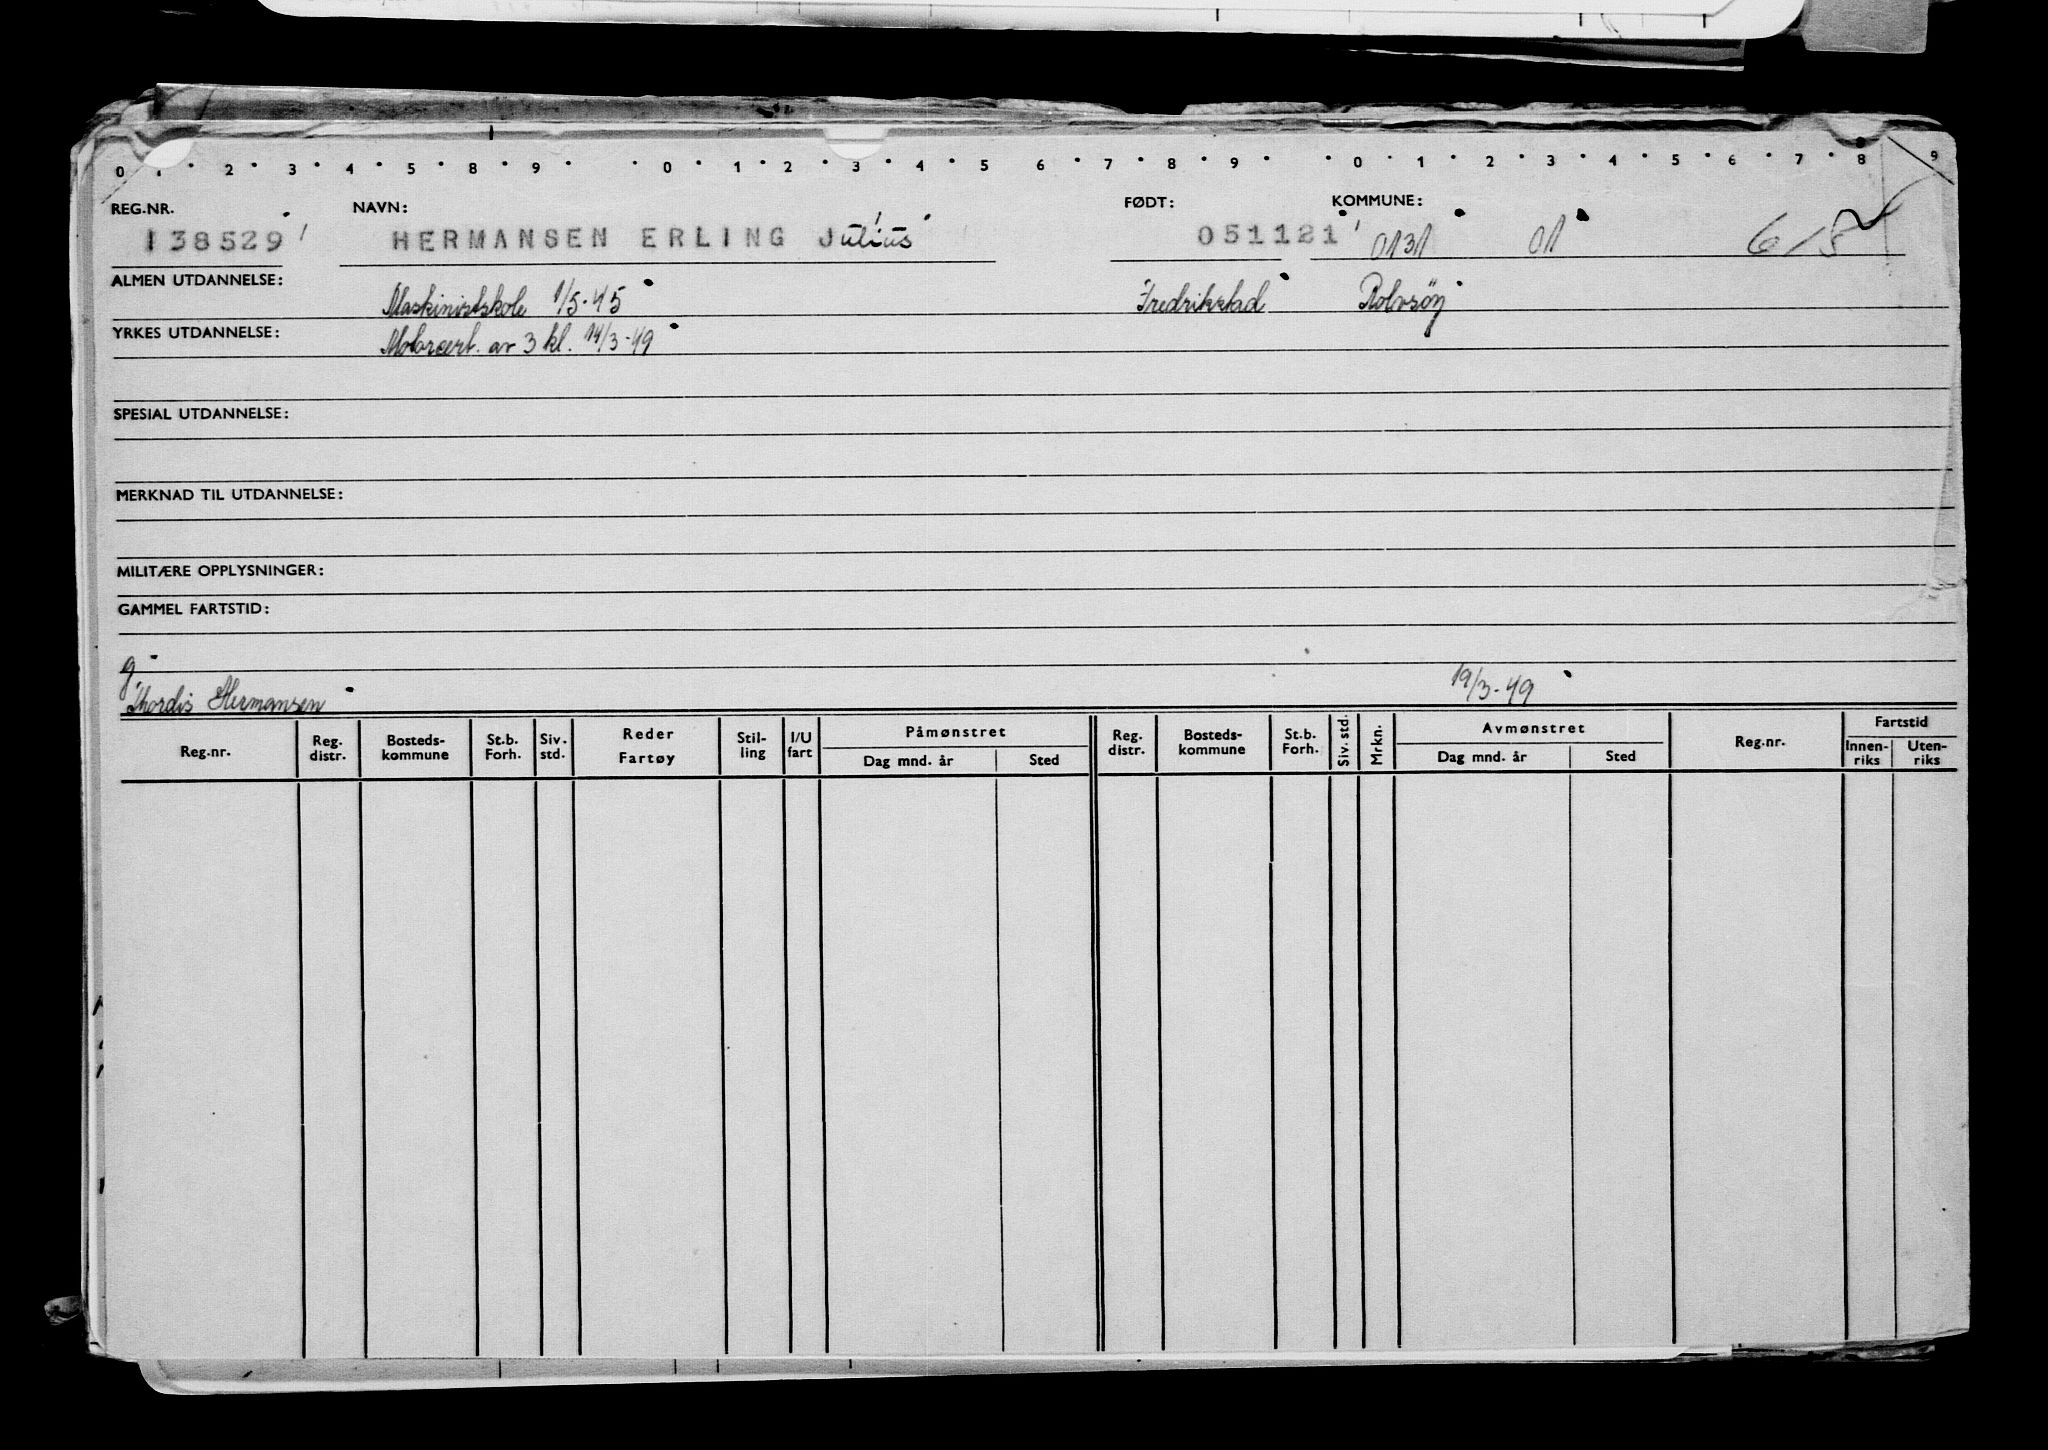 0 1 2 3 4 5 8 9 0 1 2 3 4 5 6 7 8 9 0 1 2 3 4 5 6 7 8 9
REG.NR. NAVN: FØDT: KOMMUNE:
138529 HERMANSEN ERLING Julius 051121 0131 01
ALMEN UTDANNELSE: Maskinistskole 1/5-45 Fredrikstad Rolvsøy
YRKES UTDANNELSE: Motorcert. av 3 kl. 14/3-49
SPESIAL UTDANNELSE:
MERKNAD TIL UTDANNELSE:
MILITÆRE OPPLYSNINGER:
GAMMEL FARTSTID:
g
Thordis Hermansen 19/3-49
Reg.nr. Reg. distr. Bosteds-kommune St.b. Forh. Siv. std. Reder Fartøy Stil-ling I/U fart Påmønstret Dag mnd. år Sted Reg. distr. Bosteds-kommune St.b. Forh. Siv. std. Mrkn. Avmønstret Dag mnd. år Sted Reg.nr. Fartstid Innen-riks Uten-riks